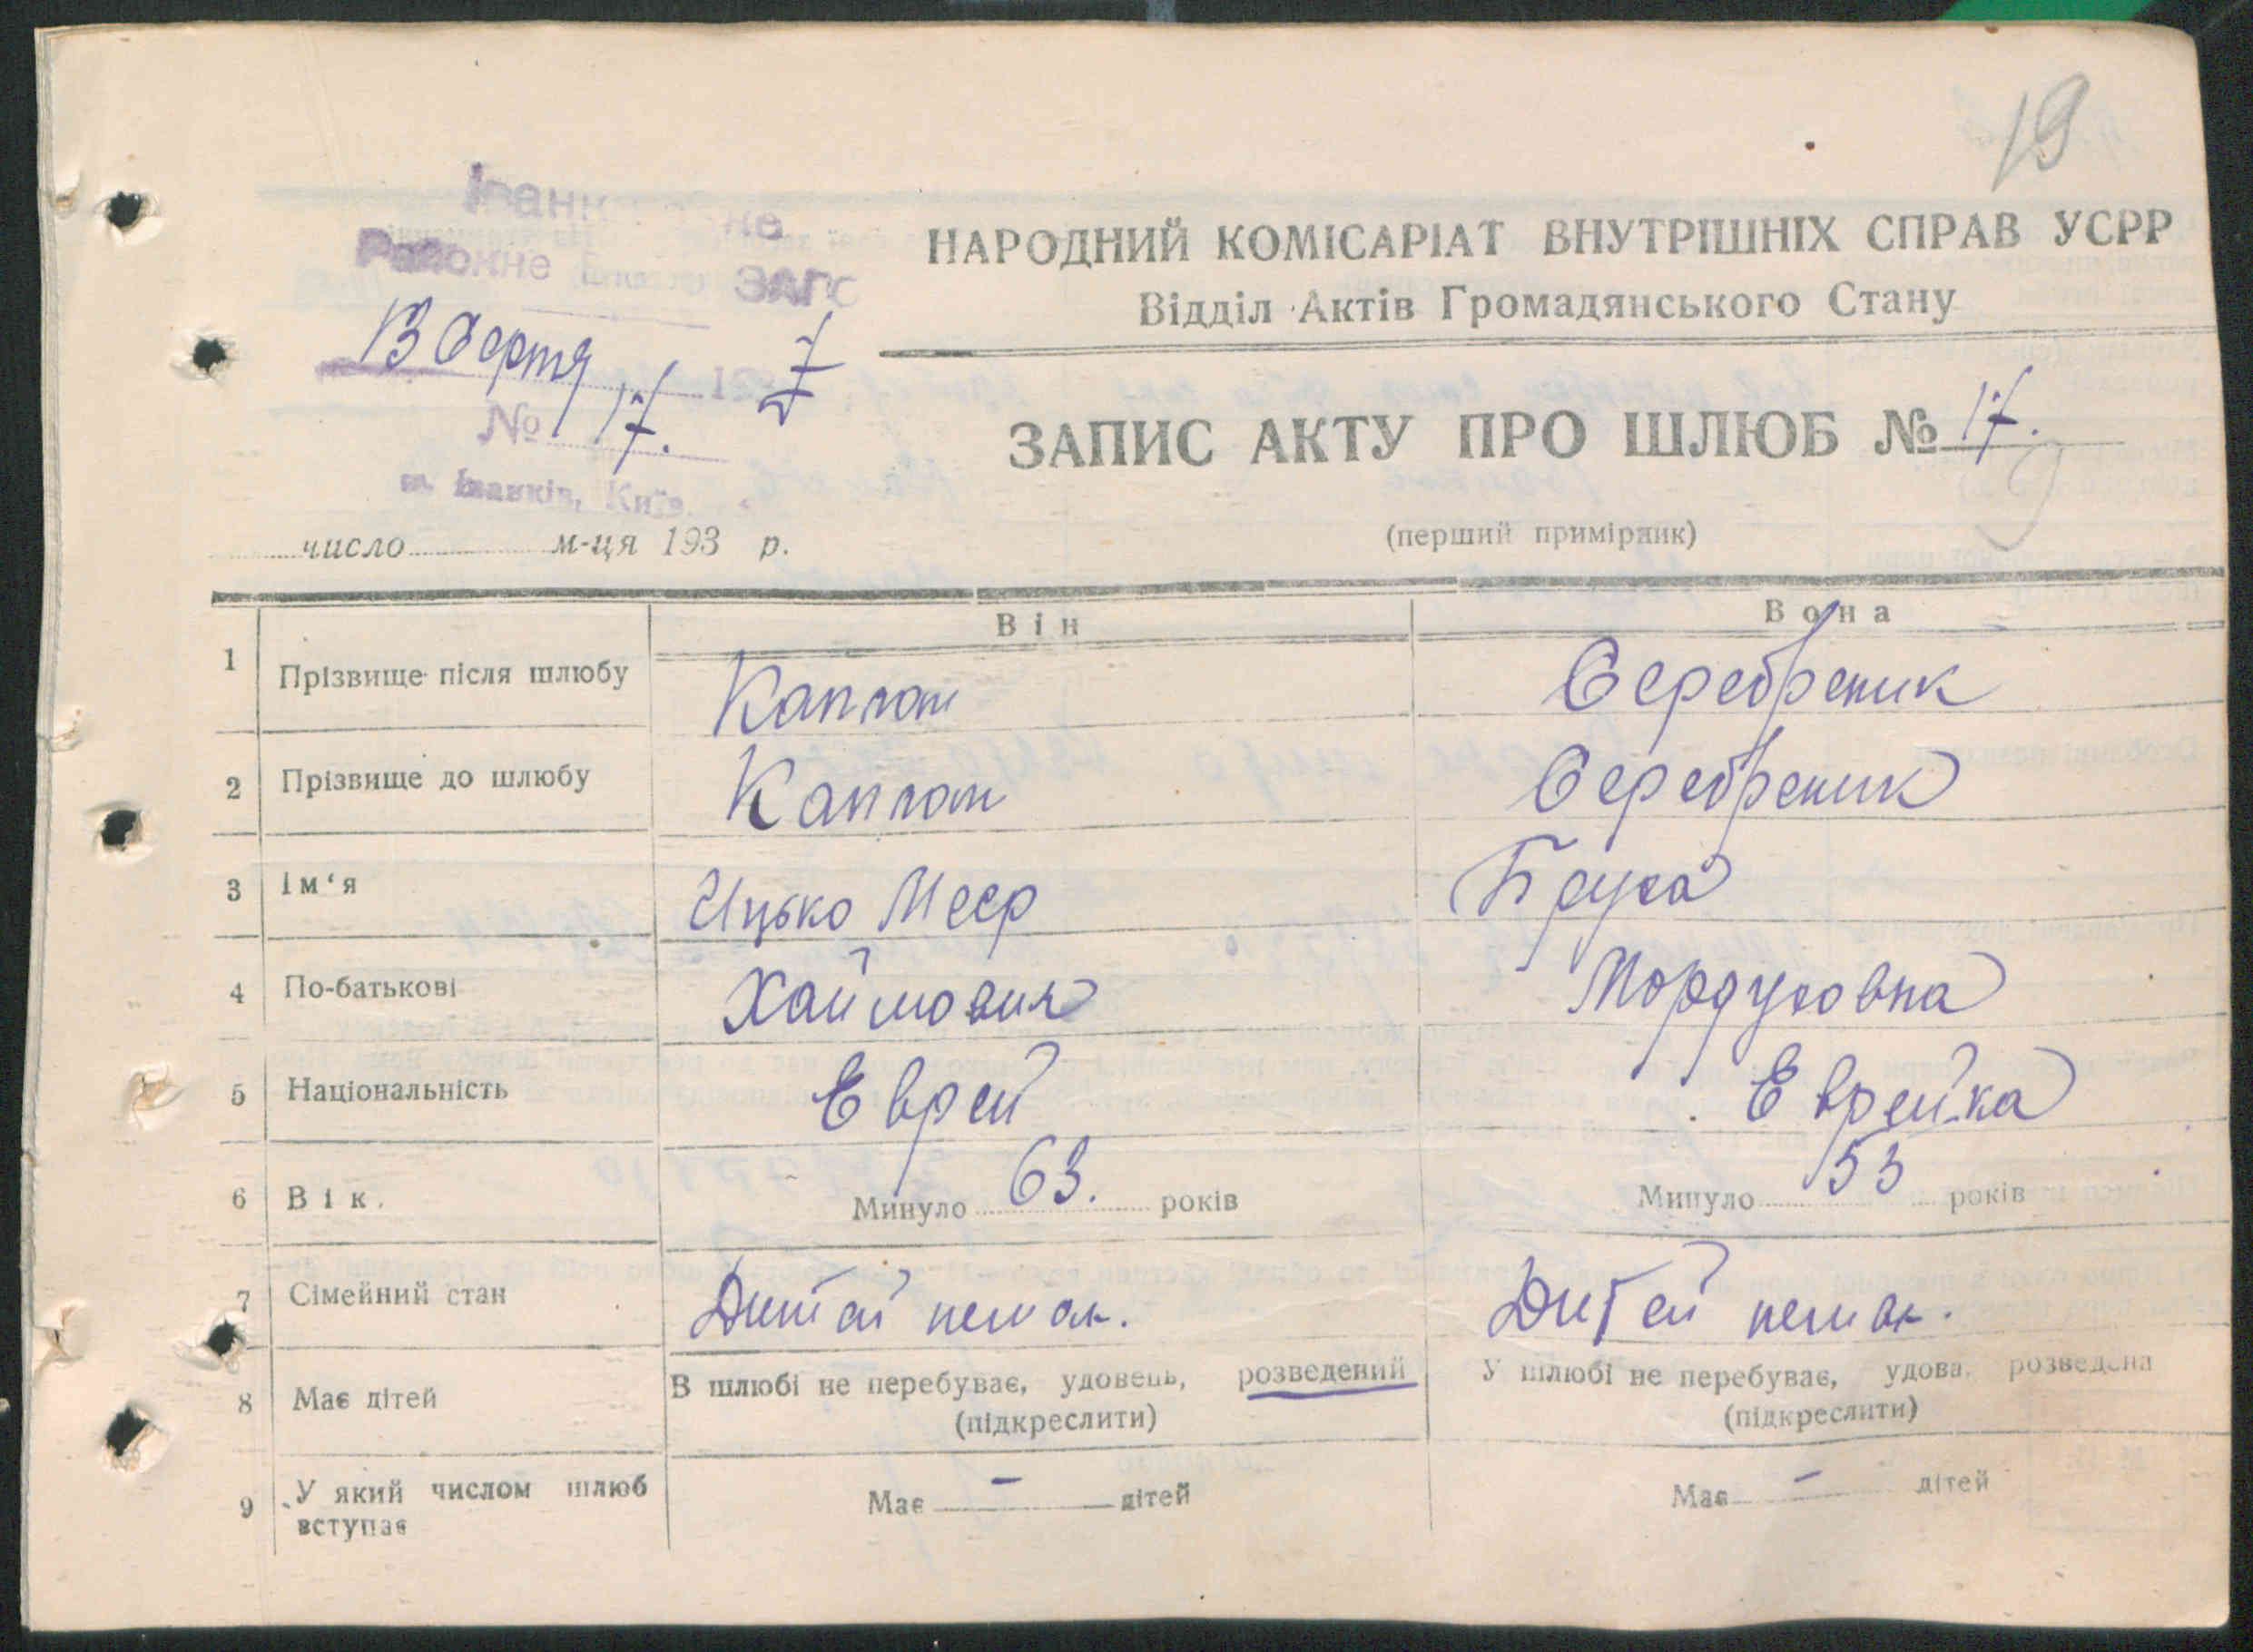 19
Районне ЗАГС
НАРОДНИЙ КОМІСАРІАТ ВНУТРІШНІХ СПРАВ УСРР
Відділ Актів Громадянського Стану
13 Серпня 193 7
№ 17.
м. Іванків, Київ.
ЗАПИС АКТУ ПРО ШЛЮБ № 17.
число м-ця 193 р.
(перший примірник)
Він Вона
1 Прізвище після шлюбу Каплан Серебреник
2 Прізвище до шлюбу Каплан Серебреник
3 Ім'я Ицько Меер Бруха
4 По-батькові Хаймович Мордуховна
5 Національність Еврей Еврейка
6 Вік. Минуло 63. років Минуло 53 років
7 Сімейний стан Дитей немає. Дитей немає.
8 Має дітей В шлюбі не перебуває, удовець, розведений У шлюбі не перебуває, удова, розведена
(підкреслити) (підкреслити)
9 У який числом шлюб вступає Має – дітей Має – дітей